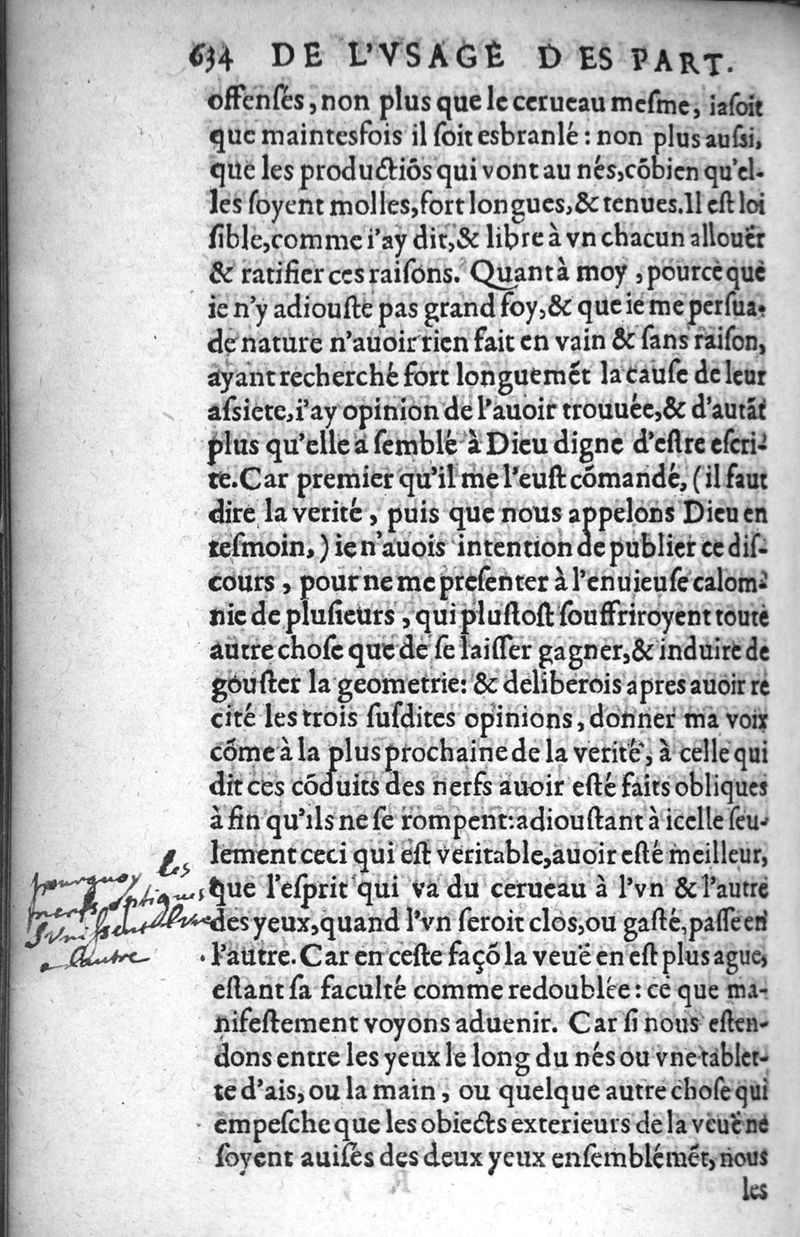 634 DE L'VSAGE DES PART.
offenſés, non plus que le cerueau meſme, iaſoit
que maintesfois il ſoit esbranlé: non plus auſsi,
que les productiõs qui vont au nés, cõbien qu'el-
les ſoyent molles, fort longues, & tenues. Il eſt loi
ſible, comme i'ay dit, & libre à vn chacun allouër
& ratifier ces raiſons. Quant à moy, pource que
ie n'y adiouſte pas grand foy, & que ie me perſua-
de nature n'auoir rien fait en vain & ſans raiſon,
ayant recherché fort longuemẽt la cauſe de leur
aſsiete, i'ay opinion de l'auoir trouuée, & d'autãt
plus qu'elle a ſemblé à Dieu digne d'eſtre eſcri-
te. Car premier qu'il me l'euſt cõmandé, (il faut
dire la verité, puis que nous appelons Dieu en
teſmoin,) ie n'auois intention de publier ce diſ-
cours, pour ne me preſenter à l'enuieuſe calom-
nie de pluſieurs, qui pluſtoſt ſouffriroyent toute
autre choſe que de ſe laiſſer gagner, & induire de
gouſter la geometrie: & deliberois apres auoir re
cité les trois ſuſdites opinions, donner ma voix
cõme à la plus prochaine de la verité, à celle qui
dit ces cõduits des nerfs auoir eſté faits obliques
à fin qu'ils ne ſe rompent: adiouſtant à icelle ſeu-
lement ceci qui eſt veritable, auoir eſté meilleur,
que l'eſprit qui va du cerueau à l'vn & l'autre
des yeux, quand l'vn ſeroit clos, ou gaſté, paſſe en
l'autre. Car en ceſte façõ la veuë en eſt plus ague,
eſtant ſa faculté comme redoublée: ce que ma-
nifeſtement voyons aduenir. Car ſi nous eſten-
dons entre les yeux le long du nés ou vne tablet-
te d'ais, ou la main, ou quelque autre choſe qui
empeſche que les obiects exterieurs de la veuë ne
ſoyent auiſés des deux yeux enſemblémẽt, nous
les
pourquoy les
nerfs optiques
s'vnissent l'vn
a l'autre